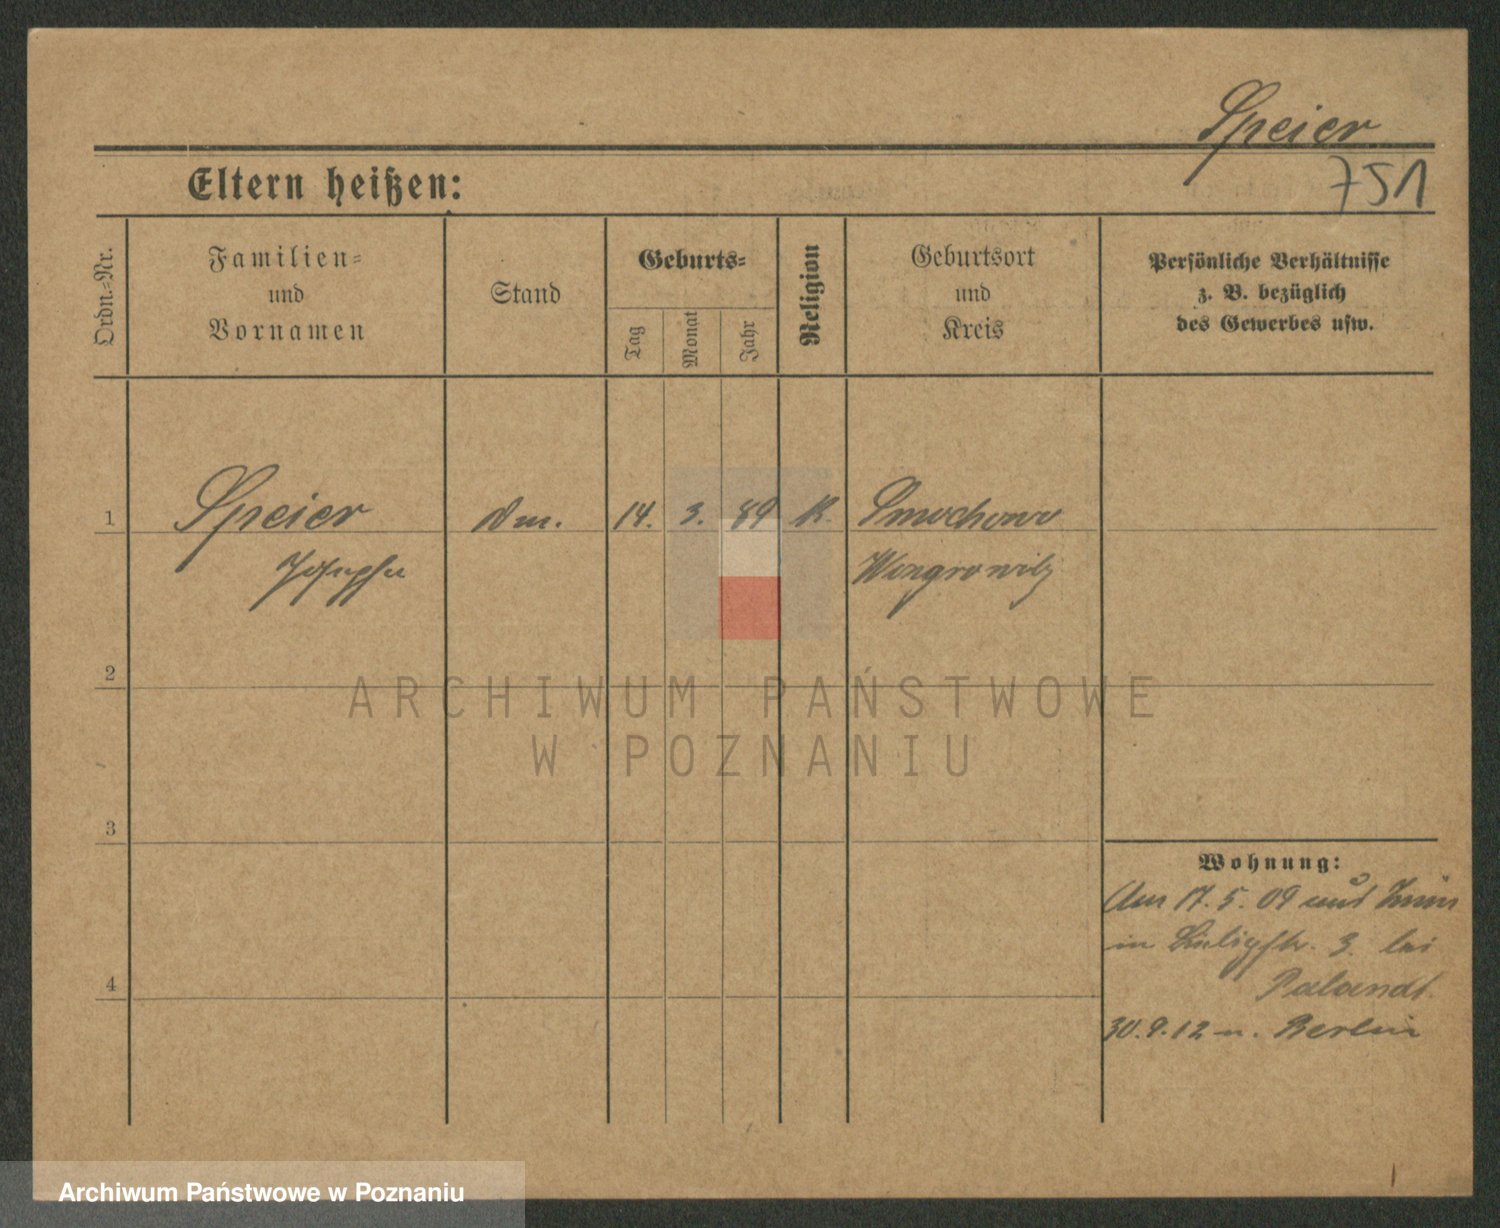 Speier
751
Eltern heißen:
Ordn.=Nr.
Familien=
und
Vornamen
Stand
Geburts=
Tag
Monat
Jahr
Religion
Geburtsort
und
Kreis
Persönliche Verhältnisse
z. B. bezüglich
des Gewerbes usw.
1
Speier
Dm.
14. 3. 89 K.
Smochowo
Josepha
Wongrowitz
2
ARCHIWUM PAŃSTWOWE
W POZNANIU
3
Wohnung:
Am 17. 5. 09 aus Znin
in 3. bei
Palandt.
4
30.9.12 n. Berlin
Archiwum Państwowe w Poznaniu